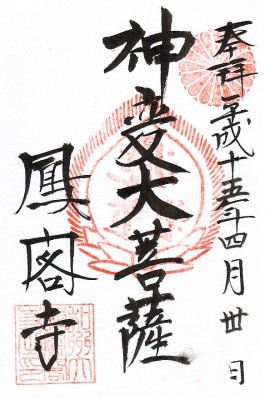 奉拝 平成十五年四月卅日
神変大菩薩
鳳閣寺